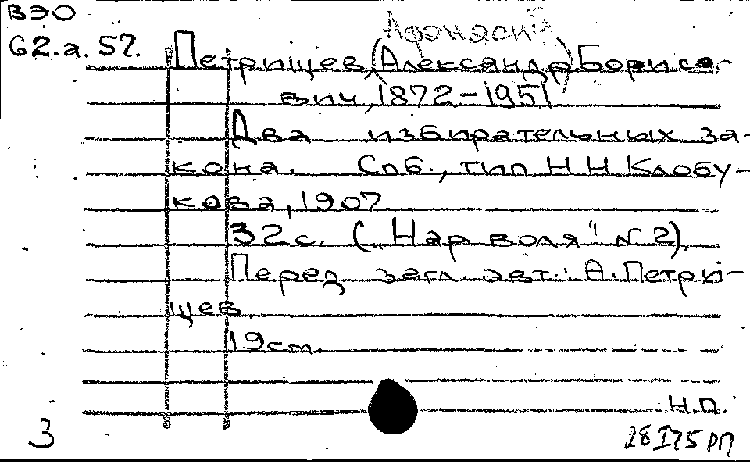 ВЭО
62.а.57.
Афанасий
Петрищев, (Александр) Борисо-
вич, 1872-1951
Два избирательных за-
кона. Спб., тип Н Н Клобу-
кова, 1907
32с. („Нар воля" N 2).
Перед загл. авт.: А.Петри-
щев
19см.
Н.П.
3
28 175 РП